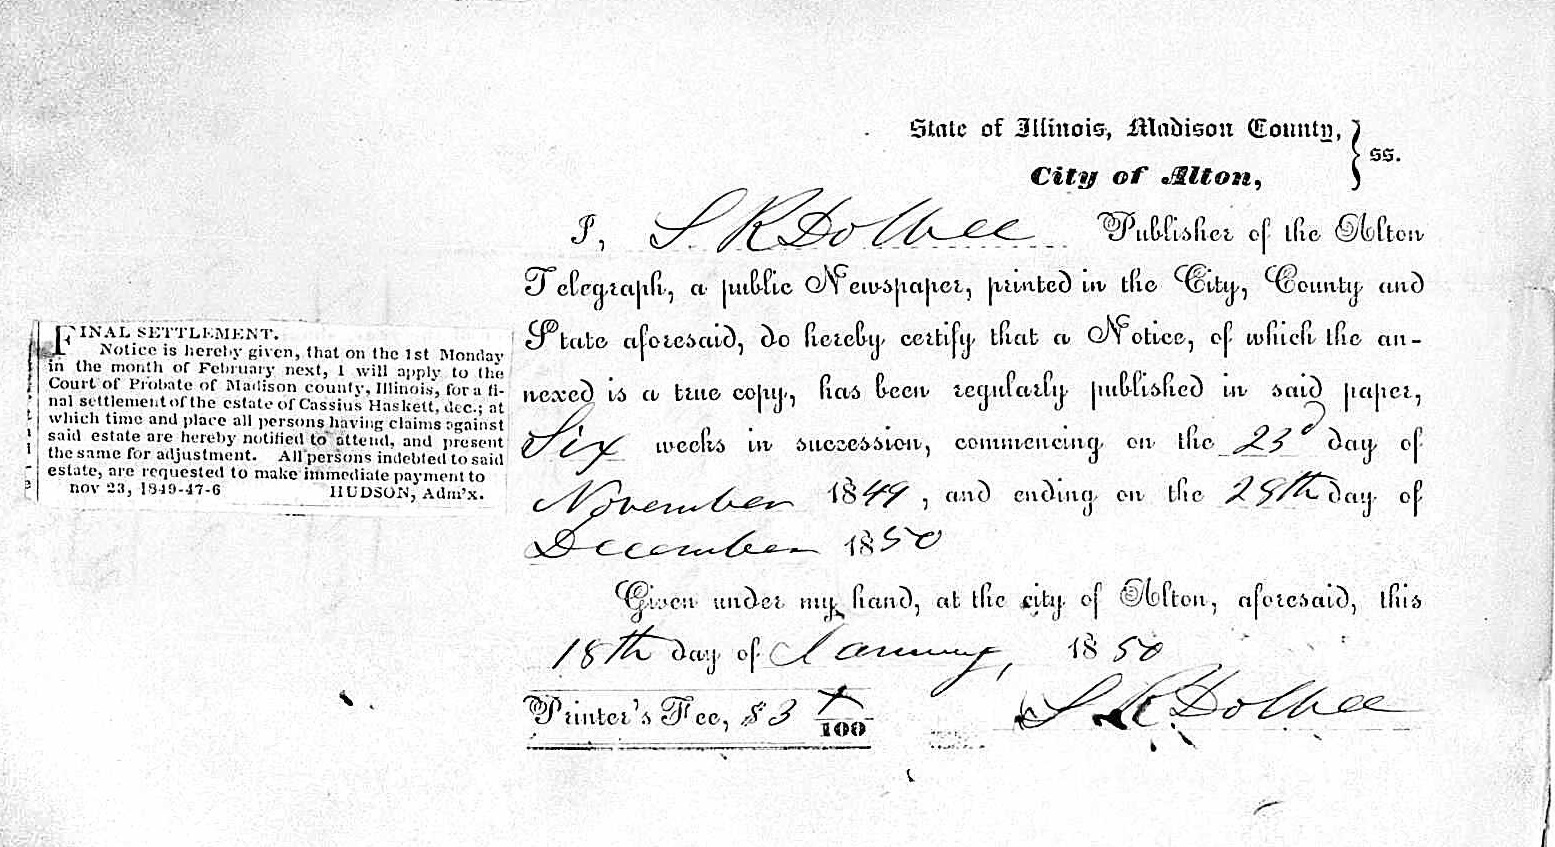 State of Illinois, Madison County, } ss.
City of Alton,
I, S R Dolbee Publisher of the Alton
Telegraph, a public Newspaper, printed in the City, County and
State aforesaid, do hereby certify that a Notice, of which the an-
nexed is a true copy, has been regularly published in said paper,
Six weeks in succession, commencing on the 23d day of
November 1849, and ending on the 28th day of
December 1850
Given under my hand, at the city of Alton, aforesaid, this
18th day of January, 1850
Printer's Fee, $3 x/100 S R Dolbee
FINAL SETTLEMENT.
Notice is hereby given, that on the 1st Monday
in the month of February next, I will apply to the
Court of Probate of Madison county, Illinois, for a fi-
nal settlement of the estate of Cassius Haskett, dec.; at
which time and place all persons having claims against
said estate are hereby notified to attend, and present
the same for adjustment. All persons indebted to said
estate, are requested to make immediate payment to
nov 23, 1849-47-6 HUDSON, Adm'x.